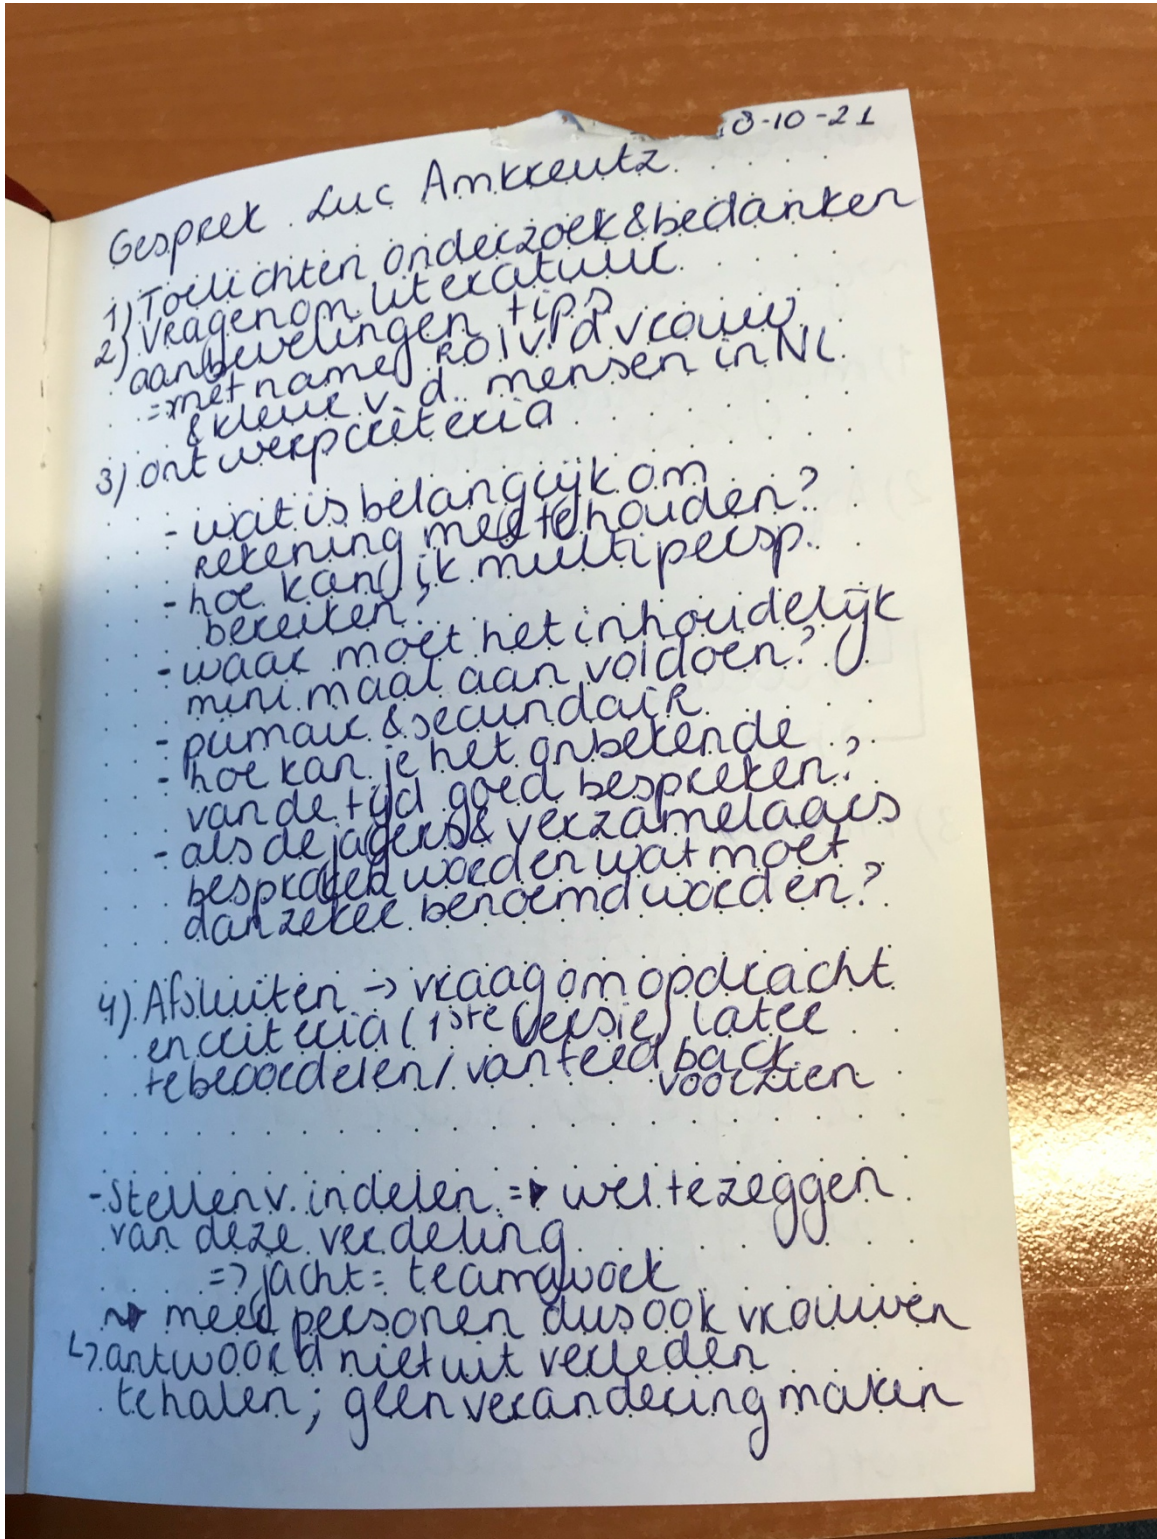 8-10-21
Gesprek Luc Amkreutz
1) Toelichten onderzoek & bedanken
2) vragen om literatuur
aanbevelingen tips
= met name rol v/d vrouw
& kleur v. d. mensen in NL
3) ontwerpcriteria
- wat is belangrijk om
rekening mee te houden?
- hoe kan ik multipersp.
bereiken?
- waar moet het inhoudelijk
minimaal aan voldoen?
- primair & secundair
- hoe kan je het onbekende
van de tijd goed bespreken?
- als de jagers & verzamelaars
besproken worden wat moet
dan zeker benoemd worden?
4) Afsluiten -> vraag om opdracht
en criteria (1ste versie) later
te beoordelen / van feedback
voorzien
- Stellen v. indelen => wel te zeggen
van deze verdeling
=> jacht = teamwork
meer personen dus ook vrouwen
↳ antwoord niet uit verleden
te halen; geen verandering maken